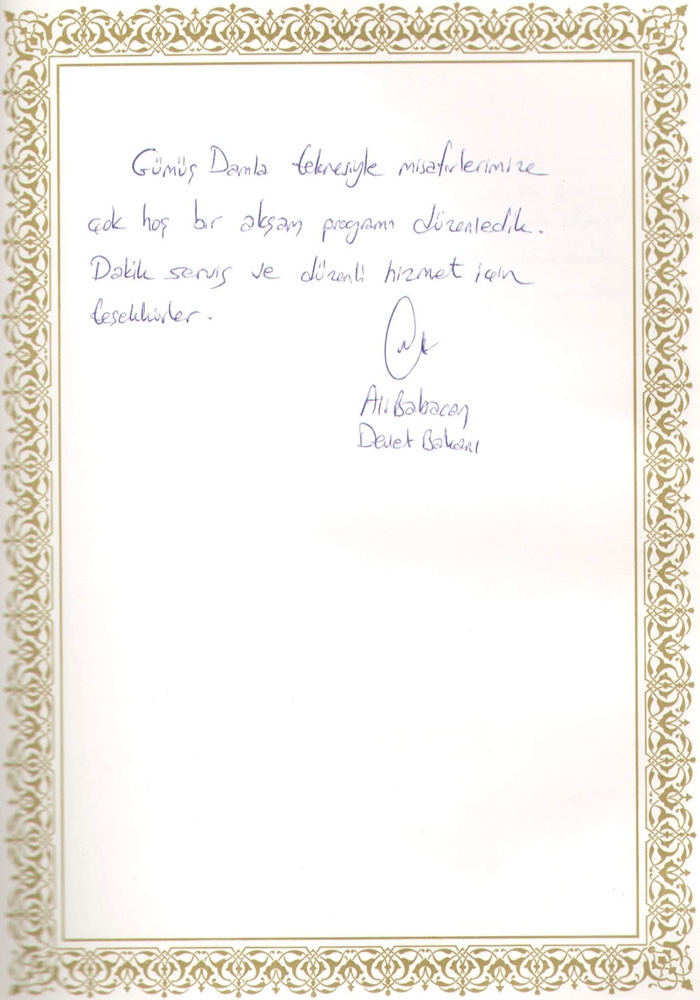 Gümüş Damla teknesiyle misafirlerimize
çok hoş bir akşam programı düzenledik.
Dakik servis ve düzenli hizmet için
teşekkürler.
Ali Babacan
Devlet Bakanı